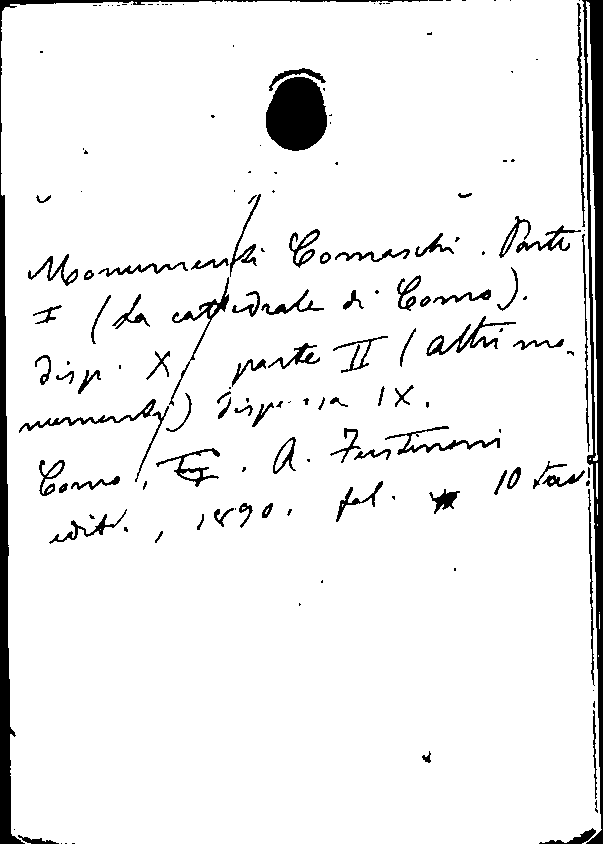 Monumenti Comaschi. Parte
I (La cattedrale di Como).
disp. X. parte II (altri mo-
numenti) dispensa IX.
Como, A.
edit., 1890. fol. 10 tav.